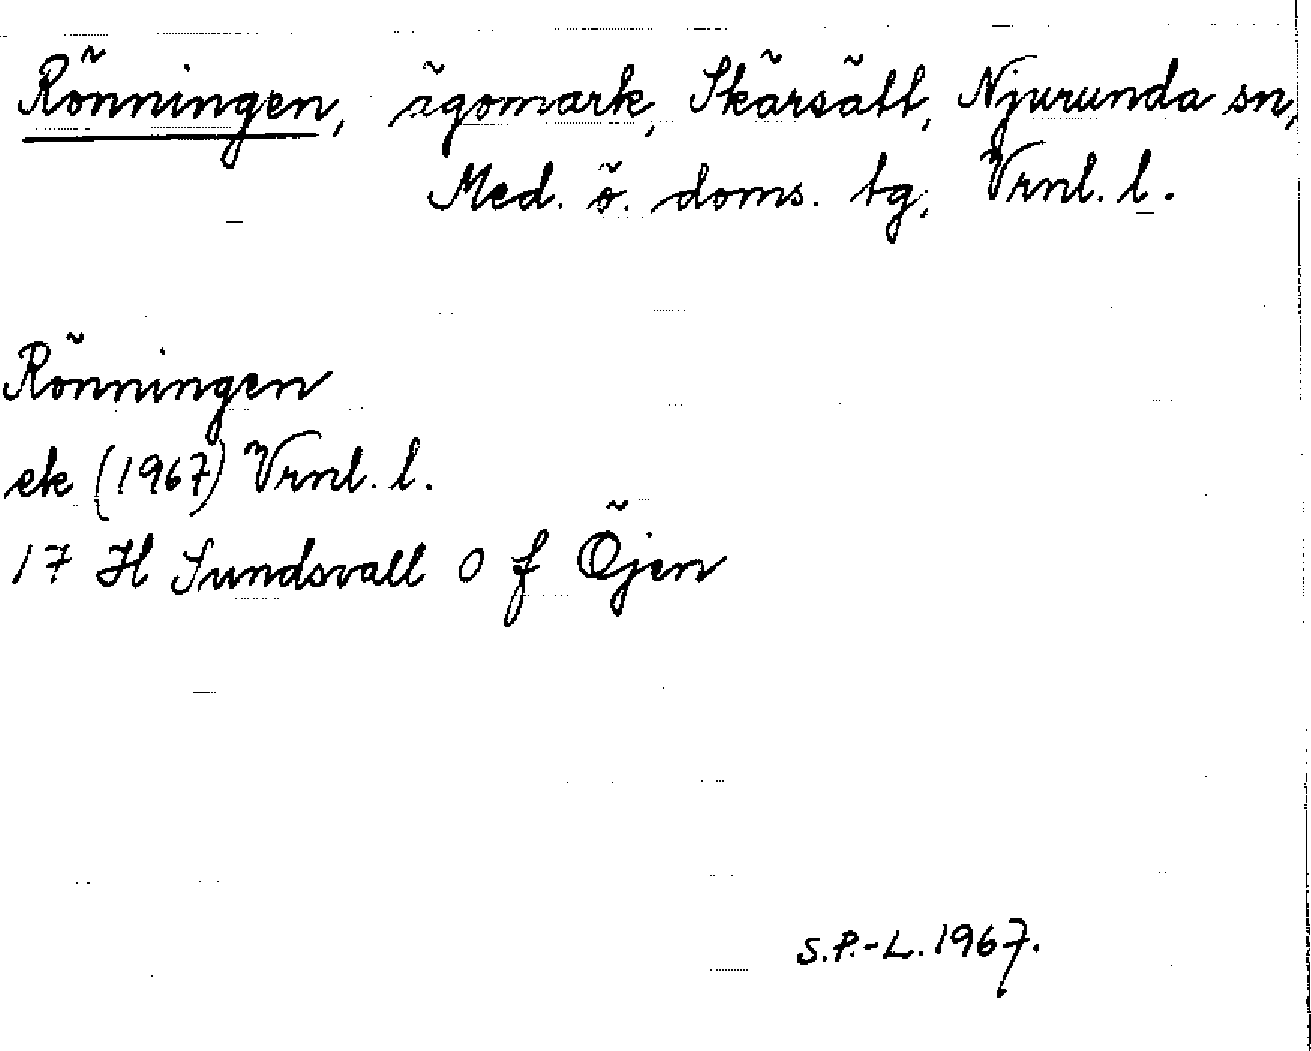 Rönningen, ägomark, Skärsätt, Njurunda sn,
Med. ö. doms. tg, Vrnl. l.
Rönningen
ek (1967) Vrnl. l.
17 H Sundsvall O f Öjen
S.P.-L. 1967.